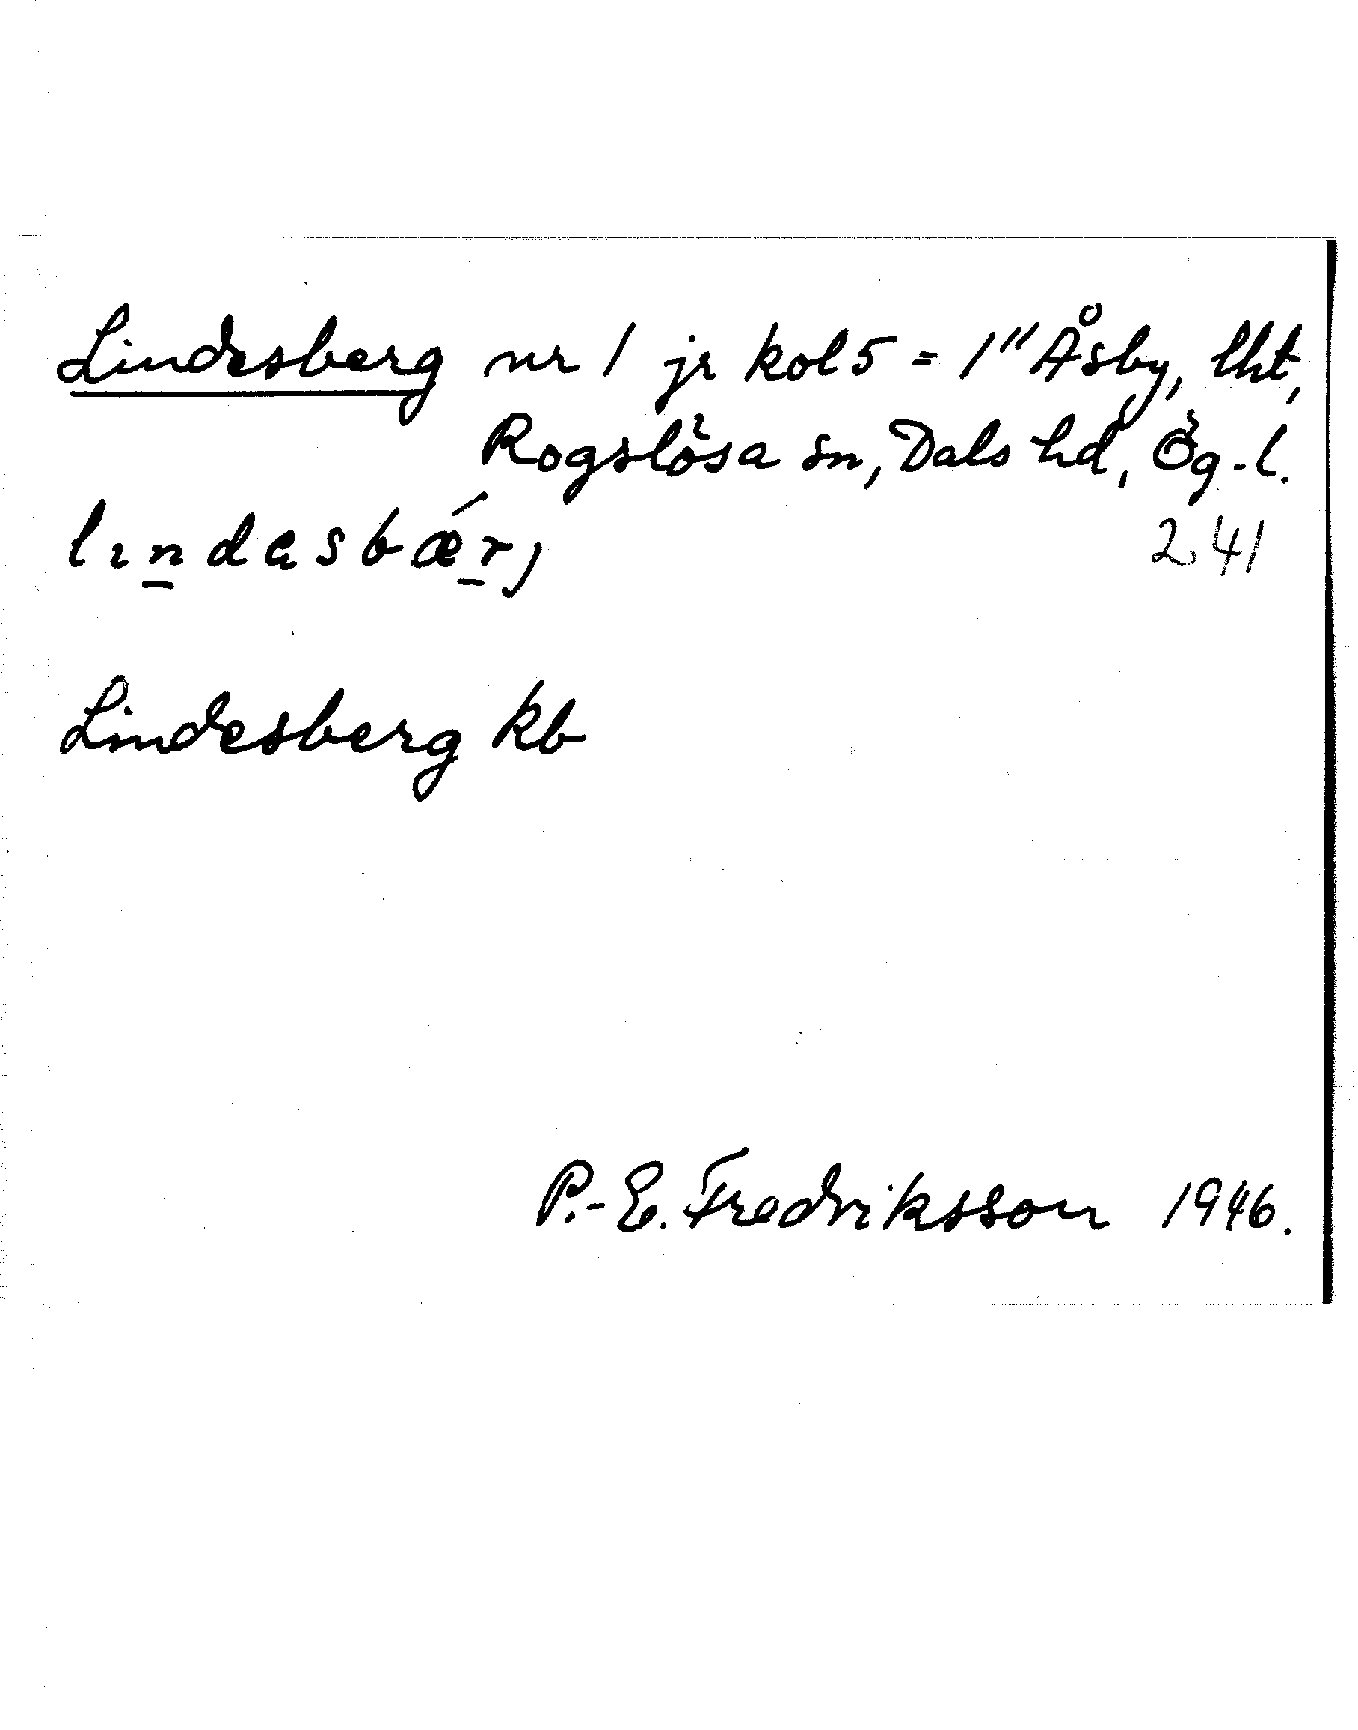 Lindesberg nr 1 jr kol 5 = 1" Åsby, lht,
Rogslösa sn, Dals hd, Ög.l.
lɪndasbǽrj
241
Lindesberg kb
P.-E. Fredriksson 1946.